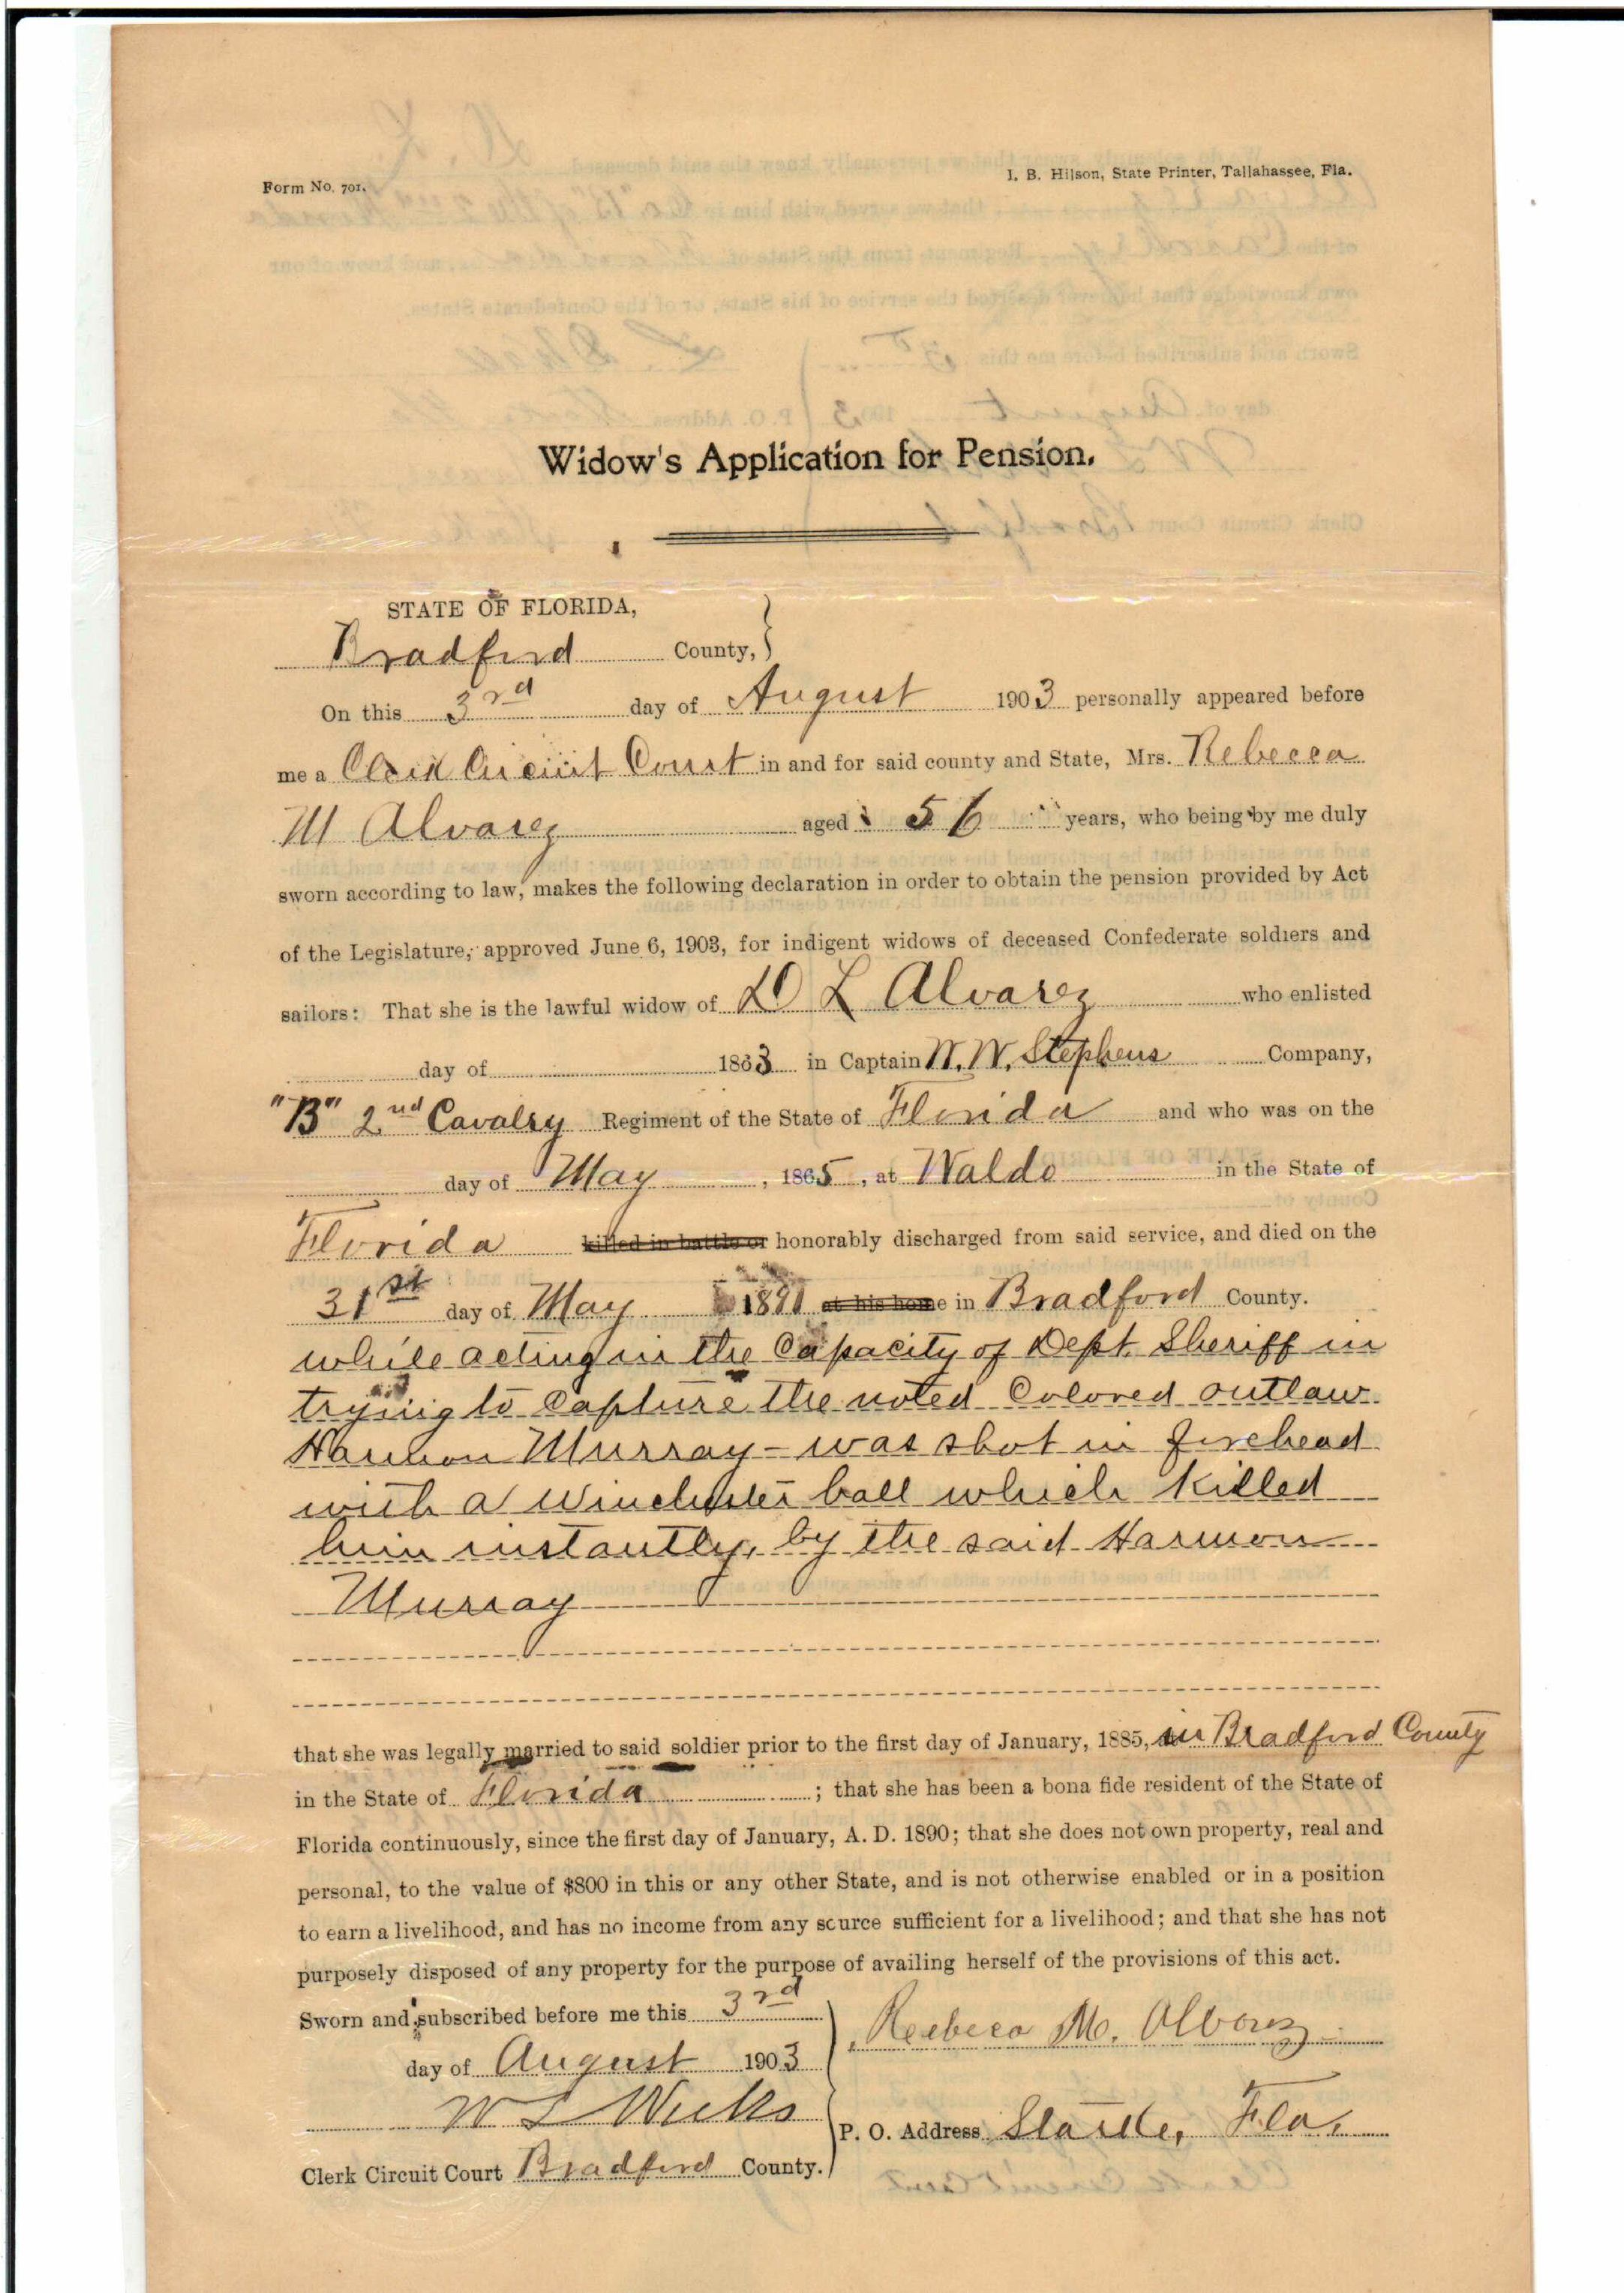 Form No. 701.
I. B. Hilson, State Printer, Tallahassee, Fla.
Widow's Application for Pension.
STATE OF FLORIDA,
Bradford County,
On this 3rd day of August 1903 personally appeared before
me a Clerk Circuit Court in and for said county and State, Mrs. Rebecca
M Alvarez aged 56 years, who being by me duly
sworn according to law, makes the following declaration in order to obtain the pension provided by Act
of the Legislature, approved June 6, 1903, for indigent widows of deceased Confederate soldiers and
sailors: That she is the lawful widow of D L Alvarez who enlisted
day of 1863 in Captain W. W. Stephens Company,
"B" 2nd Cavalry Regiment of the State of Florida and who was on the
day of May, 1865, at Waldo in the State of
Florida killed in battle or honorably discharged from said service, and died on the
31st day of May 1891 at his home in Bradford County.
while acting in the Capacity of Dept. Sheriff in
trying to Capture the noted Colored outlaw
Harmon Murray - was shot in forehead
with a Winchester ball which killed
him instantly, by the said Harmon
Murray
that she was legally married to said soldier prior to the first day of January, 1885, in Bradford County
in the State of Florida; that she has been a bona fide resident of the State of
Florida continuously, since the first day of January, A. D. 1890; that she does not own property, real and
personal, to the value of $800 in this or any other State, and is not otherwise enabled or in a position
to earn a livelihood, and has no income from any source sufficient for a livelihood; and that she has not
purposely disposed of any property for the purpose of availing herself of the provisions of this act.
Sworn and subscribed before me this 3rd
day of August 1903
W L Weeks
Clerk Circuit Court Bradford County.
Rebeca M. Alvarez
P. O. Address Starke, Fla.